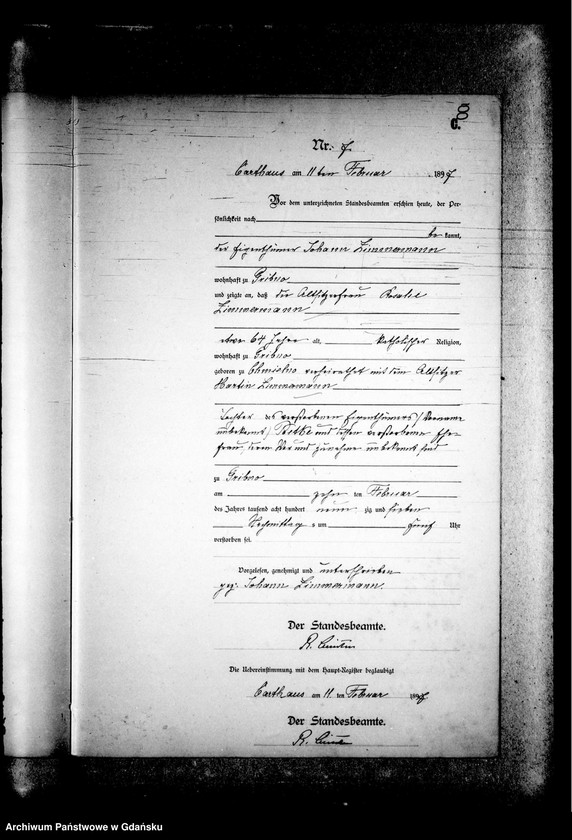 8
Nr. 7
Carthaus am 11 ten Februar 1897
Vor dem unterzeichneten Standesbeamten erschien heute, der Per-
sönlichkeit nach
be kannt,
der Eigenthümer Johann Zimmermann
wohnhaft zu Gribno
und zeigte an, daß die Altsitzerfrau Rosalie
Zimmermann
64 Jahre alt, katholischer Religion,
wohnhaft zu Gribno
geboren zu Chmielno verheirathet mit dem Altsitzer
Martin Zimmermann
Tochter des verstorbenen Eigenthümers (Vorname
unbekannt) Betke und dessen verstorbene Ehe-
frau, deren Vor und Zuname unbekannt sind
zu Gribno
am zehn ten Februar
des Jahres tausend acht hundert neun zig und sieben
Nachmittag s um fünf Uhr
verstorben sei.
Vorgelesen, genehmigt und unterschrieben
gez. Johann Zimmermann.
Der Standesbeamte.
R.
Die Uebereinstimmung mit dem Haupt-Register beglaubigt
Carthaus am 11 ten Februar 1897
Der Standesbeamte.
R.
Archiwum Państwowe w Gdańsku